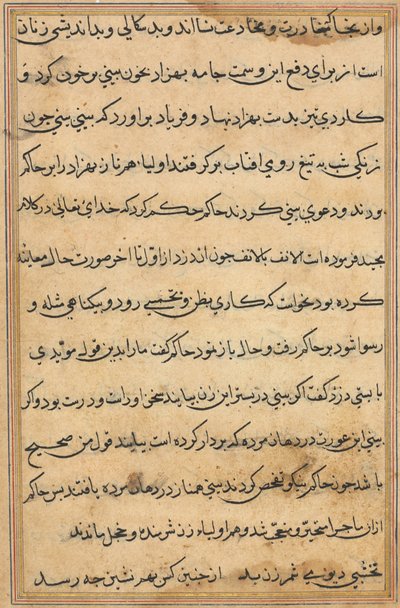 و مخادعت نسااند و بد سکالی و بداندیشی زنان
است از برای دفع این وسمت جامه بهزاد بخون بینی پر خون کرد و
کاردی تیز بدست بهزاد نهاد و فریاد براورد که بینی بینی چون
زنکی شب به تیغ روی افتاب برکرفتند اولیاء بهزاد را بر حاکم
بردند و دعوی بینی کردند حاکم حکم کرد که خدای تعالی در کلام
مجید فرموده است الانف بالانف چون ان دزد از اول تا اخر صورت حال معاینه
کرده بود نخواست که کاری بظن و تخمین رود و بیکناهی مثله و
رسوا شود بر حاکم رفت و حال باز نمود حاکم کفت ما را بدین قول مویدی
بایستی دزد کفت اکر بینی در بستر این زن بیابند سخن او راست و درست بود و اکر
بینی این عورت در دهان مرده که بر دار کرده است بیابند قول من صحیح
باشد چون حاکم نیکو تفحص کردند بینی در دهان مرده یافتند پس حاکم
ازان ماجرا متحیر و شد و هم اولیاء زن شرمنده و خجل ماندند
نخشبی دیو بی ثمر زن بد از چنین کس بهر نشین چه رسد